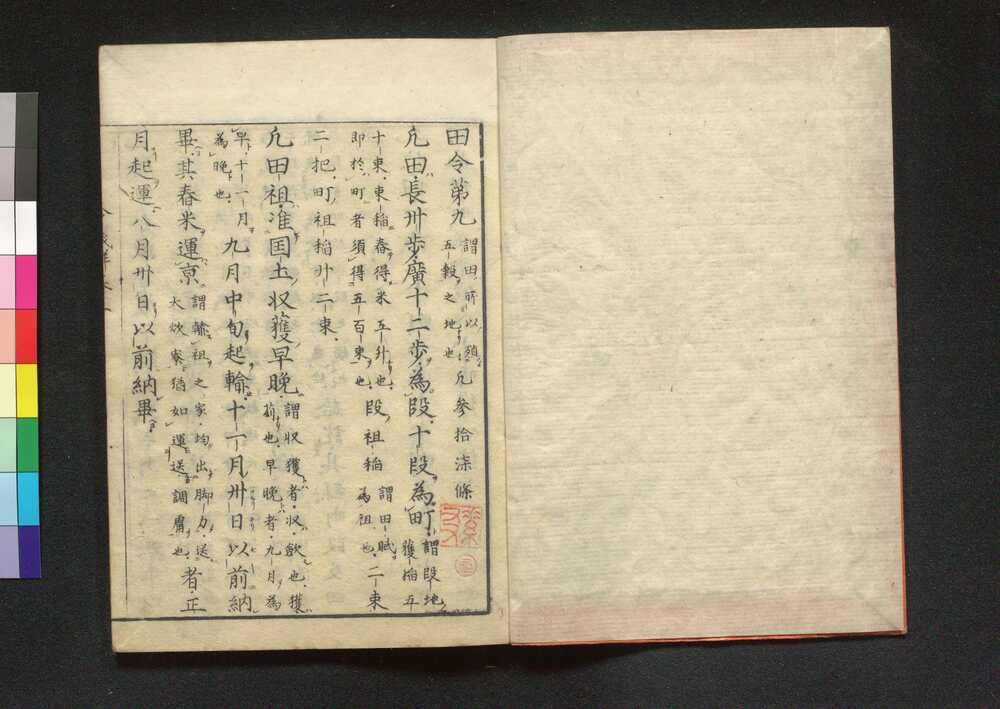 田令第九
謂田所以殖
五穀之地也
凢參拾漆條
凢田長卅歩廣十二歩為段十段為町
謂段地
獲稲五
十束束稲舂得米五升也
即於町者須得五百束也
段租稲
謂田賦
為租也
二束
二把町租稲廿二束
凢田租准国土収獲早晩
謂収獲者収歛也獲
苅也早晩者九月為
早十一月
為晩也
九月中旬起輸十一月卅日以前納
畢其舂米運京
謂輸租之家均出脚力送
大炊寮猶如運送調庸也
者正
月起運八月卅日以前納畢